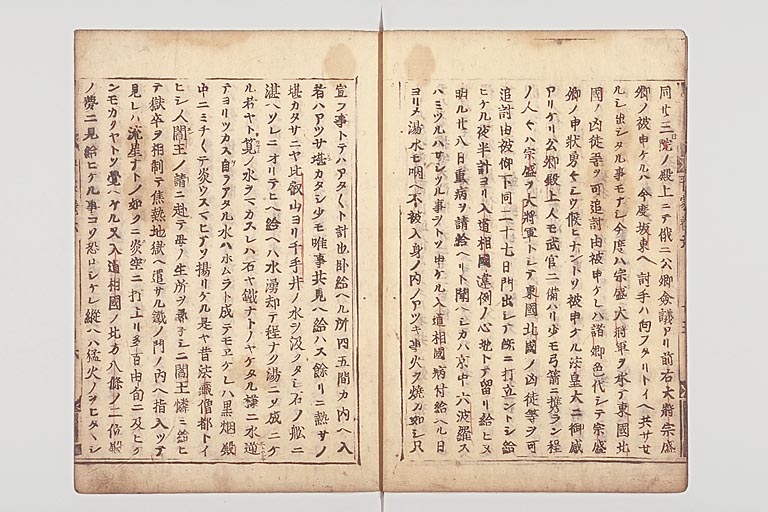 同廿三日院ノ殿上ニテ俄ニ公卿僉議アリ前右大將宗盛
卿ノ被申ケルハ今度坂東ヘ討手ハ向フタリトイヘ共サせ
ルシ出シタル事モナシ今度ハ宗盛大將軍ヲ承テ東國北
國ノ凶徒等ヲ可追討由被申ケレハ諸卿色代シテ宗盛
卿ノ申狀勇々シウ候ヒナントソ被申ケル法皇大ニ御感
アリケリ公卿殿上人モ武官ニ備ハリ少モ弓箭ニ携ラン程
ノ人々ハ宗盛ヲ大將軍トシテ東國北國ノ凶徒等ヲ可
追討由被仰下同二十七日門出シテ既ニ打立ントシ給
ヒケル夜半計ヨリ入道相國違例ノ心地トテ留リ給ヒヌ
明ル廿八日重病ヲ請給ヘリト聞ヘシカハ京中六波羅ス
ハミツルハサシツル事ヲトソ申ケル入道相國病付給ヘル日
ヨリメ湯水モ咽ヘ不被入身ノ内ノアツキ事火ヲ燒カ如シ只
宣フ事トテハアタ〱ト計也臥給ヘル所四五間カ内ヘ入
者ハアツサ堪カタシ少モ唯事共見ヘ給ハス餘リニ熱サノ
堪カタサニヤ比叡山ヨリ千手井ノ水ヲ汲クタシ石ノ船ニ
湛ヘソレニオリテヒヘ給ヘハ水湧却テ程ナク湯ニソ成ニケ
ル若ヤト筧ノ水ヲマカスレハ石ヤ鐵ナトノヤケタル樣ニ水迸
テヨリツカス自アタル水ハホムラト成テモエケレハ黒烟殿
中ニミチ〱テ炎ウスマヒアツ揚リケル是ヤ昔法藏僧都トイ
ヒシ人閻王ノ請ニ赴テ母ノ生所ヲ尋シニ閻王憐ミ給ヒ
テ獄卒ヲ相制テ焦熱地獄ヘ遣サル鐵ノ門ノ内ヘ指入ツテ
見レハ流星ナトノ如クニ炎空ニ打上リ多百由旬ニ及ヒケ
ンモカクヤトソ覺ヘケル又入道相國ノ北方八條ノ二位殿
ノ夢ニ見給ヒケル事コソ恐ロシケレ縱ヘハ猛火ノヲヒタヽシ